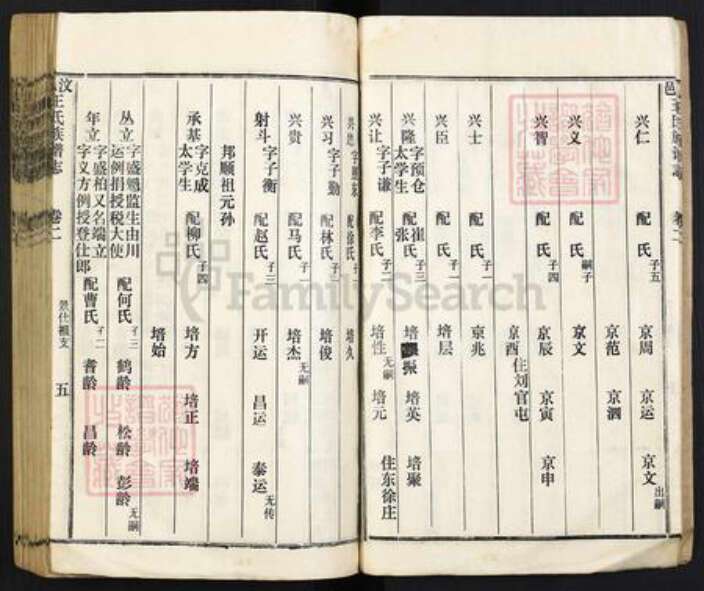 兴仁 配 氏 子五 京周 京运 京文 出嗣
京范 京泗
兴义 配 氏 嗣子 京文
兴智 配 氏 子四 京辰 京寅 京申
京酉 住刘官屯
兴士 配 氏 子一 京兆
兴臣 配 氏 子一 培层
兴隆 字预仓 太学生 配崔氏 张 子三 培振 培英 培聚
兴让 字子谦 配李氏 子二 培性 无嗣 培元 住东徐庄
配徐氏 培久
兴习 字子勤 配林氏 子一 培俊
兴贵 配马氏 子一 培杰 无嗣
射斗 字子衡 配赵氏 子三 开运 昌运 泰运 无传
邦顺祖元孙
承基 字克成 太学生 配柳氏 子四 培方 培正 培端
培始
丛立 字盛勉监生由川运例捐授税大使 配何氏 子三 鹤龄 松龄 彭龄 无嗣
年立 字盛柏又名端立字义方例授登仕郎 配曹氏 子二 耆龄 昌龄
汶 王氏族谱志 卷二 景仕祖支 五
FamilySearch